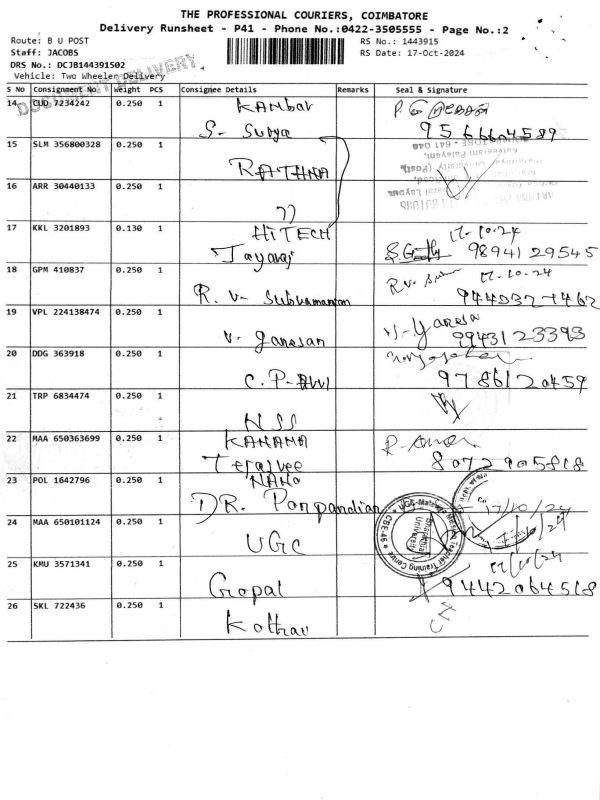 THE PROFESSIONAL COURIERS, COIMBATORE
Delivery Runsheet - P41 - Phone No.:0422-3505555 - Page No.:2
Route: B U POST
RS No.: 1443915
Staff: JACOBS
RS Date: 17-Oct-2024
DRS No.: DCJB144391502
Vehicle: Two Wheeler Delivery
DOCUMENT DELIVERY
S No Consignment No. Weight PCS Consignee Details Remarks Seal & Signature
14 CUD 7234242 0.250 1 Kambar
S- Surya 9566604589
15 SLM 356800328 0.250 1
RATHNA
16 ARR 30440133 0.250 1
))
17 KKL 3201893 0.130 1 HiTECH 17-10-24
Jayaraj 98941 29545
18 GPM 410837 0.250 1 17-10-24
R. V- Subramanian
19 VPL 224138474 0.250 1
V. ganesan 9943123393
20 DDG 363918 0.250 1
C.P- 9786120459
21 TRP 6834474 0.250 1
NSS
22 MAA 650363699 0.250 1 KANANA
8072905818
23 POL 1642796 0.250 1 NANO
DR. Ponpandian 17/10/24
24 MAA 650101124 0.250 1 17/10/24
UGC
UGC-Malaviya Mission Teacher Training Centre
Bharathiar University
CBE-46
25 KMU 3571341 0.250 1 17/10/24
Gopal 9442064518
26 SKL 722436 0.250 1